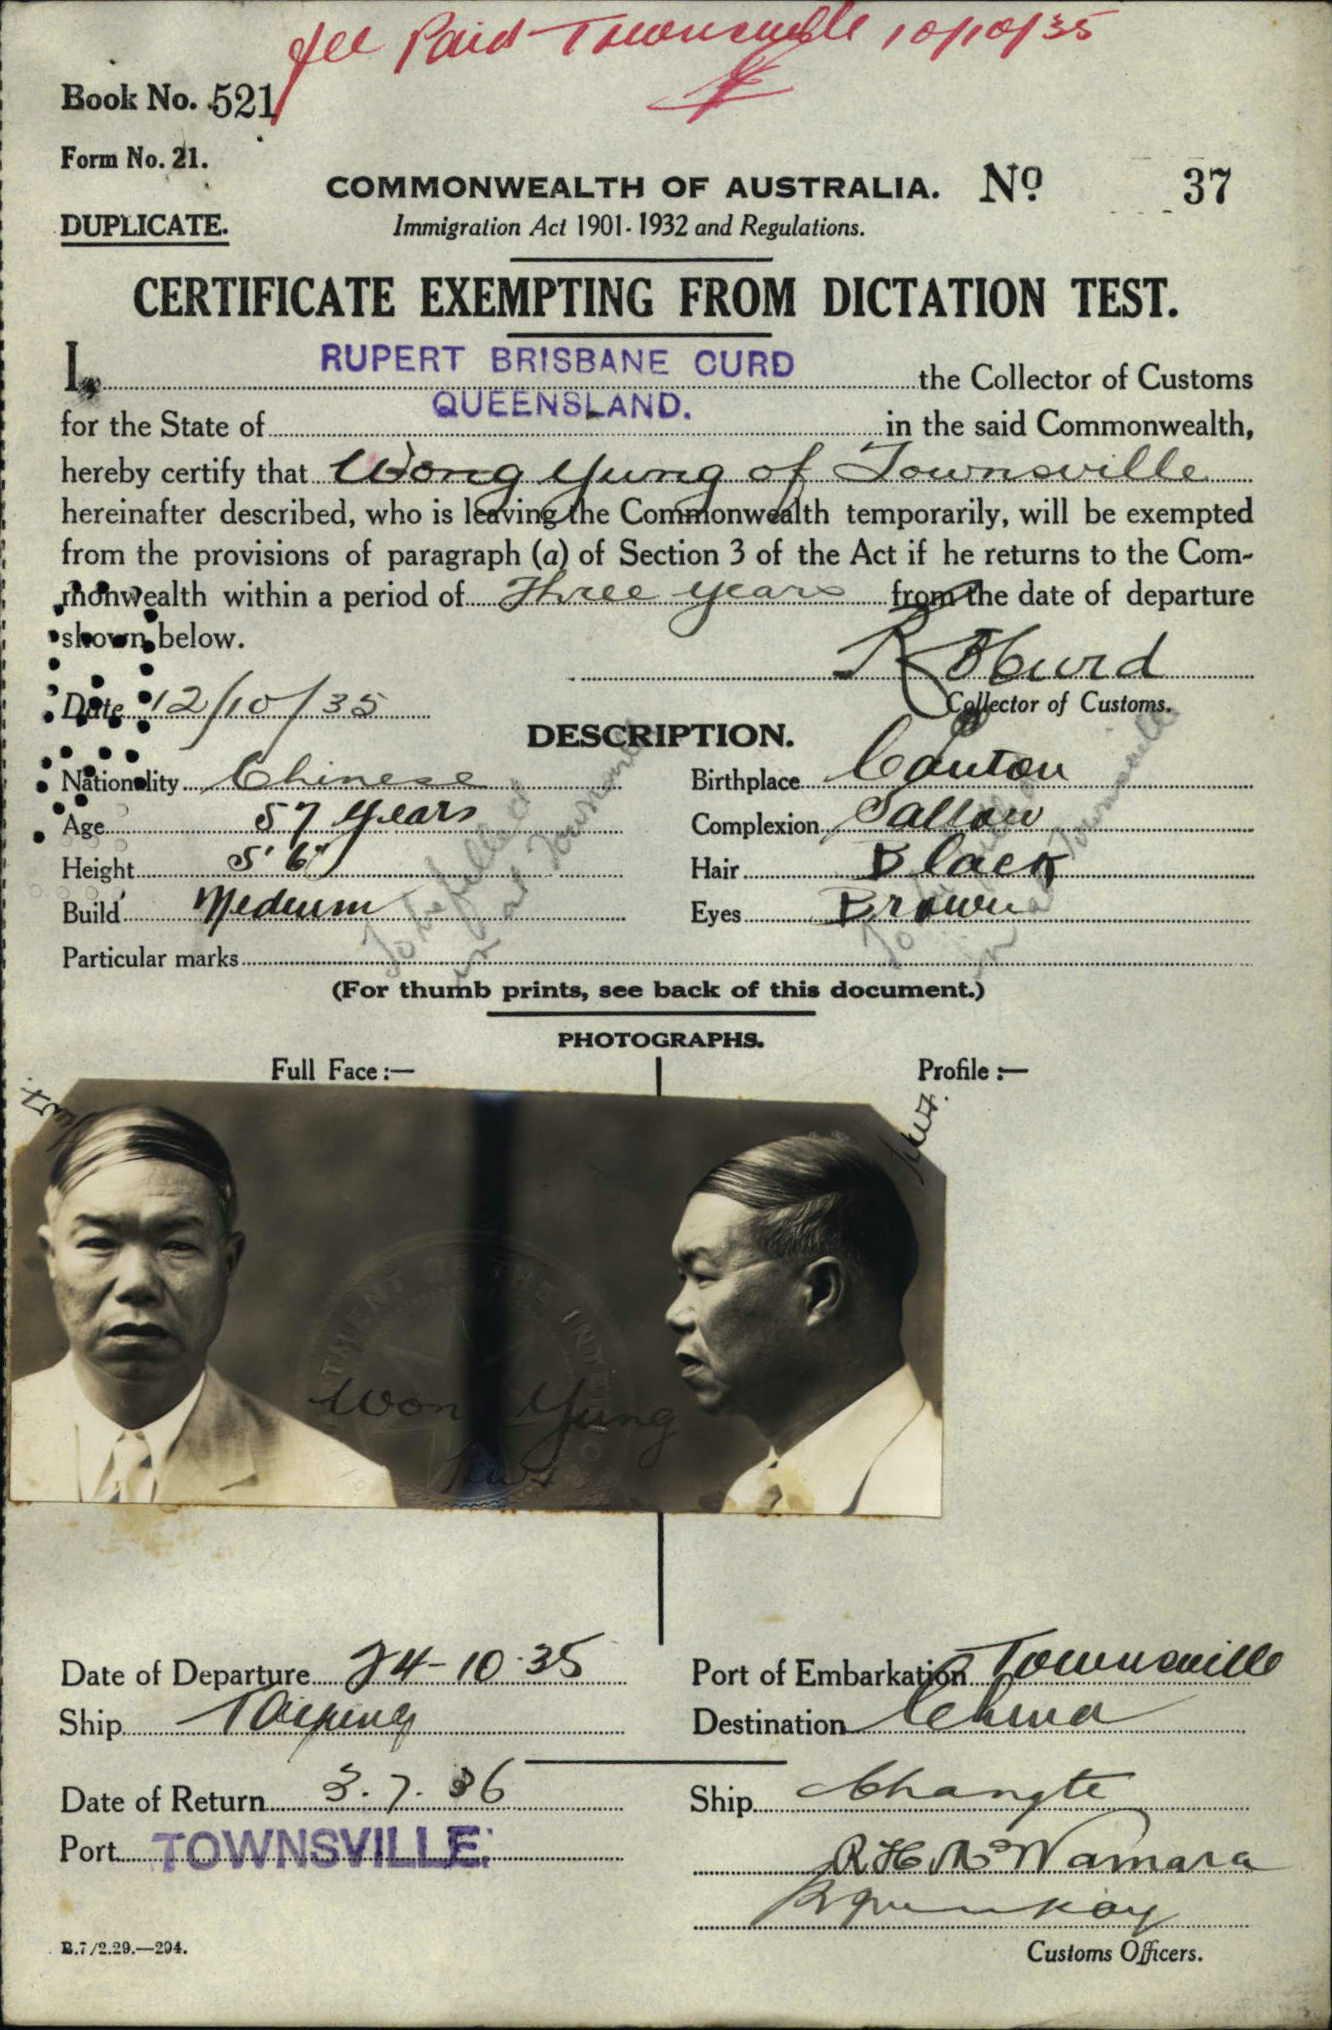 Fee Paid Townsville 10/10/35
Book No. 521
Form No. 21.
COMMONWEALTH OF AUSTRALIA. No 37
DUPLICATE.
Immigration Act 1901-1932 and Regulations.
CERTIFICATE EXEMPTING FROM DICTATION TEST.
I, RUPERT BRISBANE CURD the Collector of Customs
for the State of QUEENSLAND. in the said Commonwealth,
hereby certify that Wong Yung of Townsville
hereinafter described, who is leaving the Commonwealth temporarily, will be exempted
from the provisions of paragraph (a) of Section 3 of the Act if he returns to the Com-
monwealth within a period of Three years from the date of departure
shown below.
R B Curd
Date 12/10/35 Collector of Customs.
DESCRIPTION.
Nationality Chinese Birthplace Canton
Age 57 years Complexion Sallow
Height 5' 6" Hair Black
Build Medium Eyes Brown
Particular marks
To be filled in at Townsville
To be filled in at Townsville
(For thumb prints, see back of this document.)
PHOTOGRAPHS.
Full Face:— Profile:—
Won Yung
Date of Departure 24-10-35 Port of Embarkation Townsville
Ship Taiping Destination China
Date of Return 3.7.36 Ship Changte
Port TOWNSVILLE.
R H McNamara
Customs Officers.